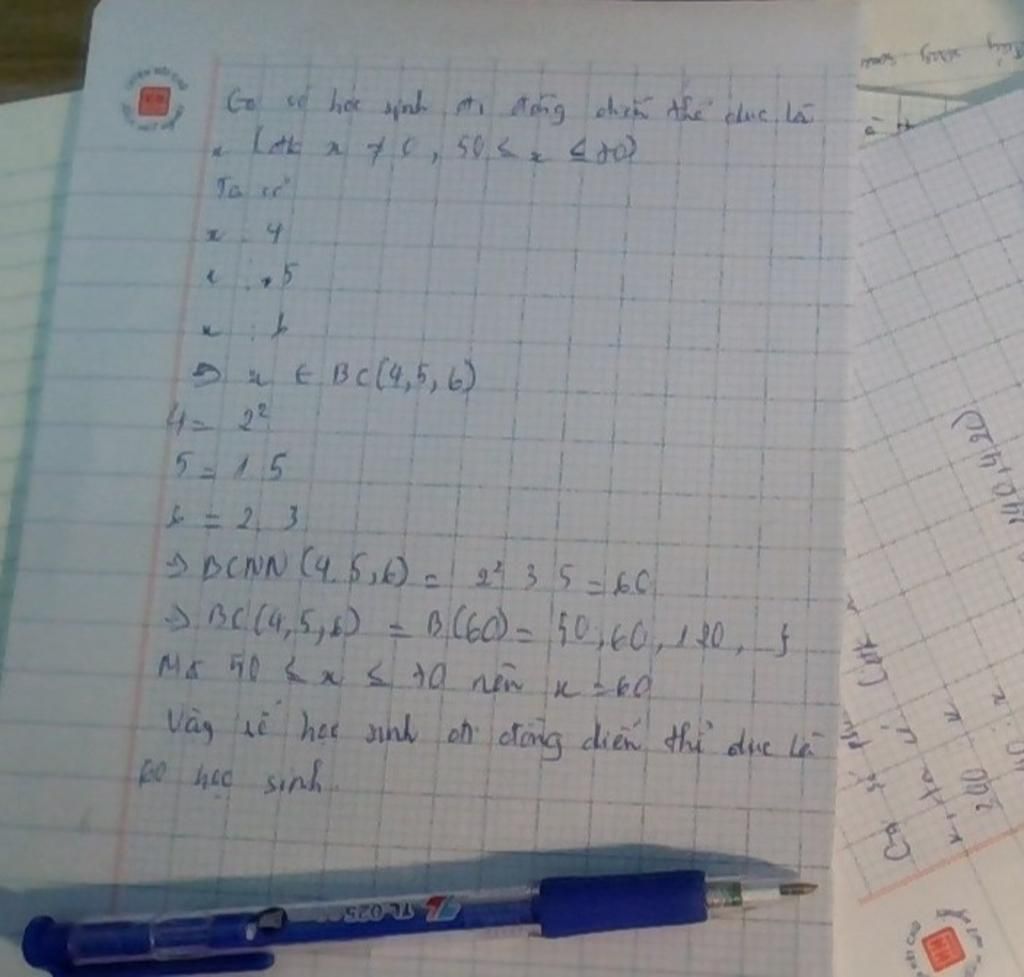 Gọi số học sinh đi đồng diễn thể dục là
x (đk x ≠ 0, 50 ≤ x ≤ 70)
Ta có
x ⋮ 4
x ⋮ 5
x ⋮ 6
=> x ∈ BC(4,5,6)
4 = 2²
5 = 1.5
6 = 2.3
=> BCNN(4,5,6) = 2².3.5 = 60
=> BC(4,5,6) = B(60) = {0,60,120,...}
Mà 50 ≤ x ≤ 70 nên x = 60
Vậy số học sinh đi đồng diễn thể dục là
60 học sinh.
TL-025